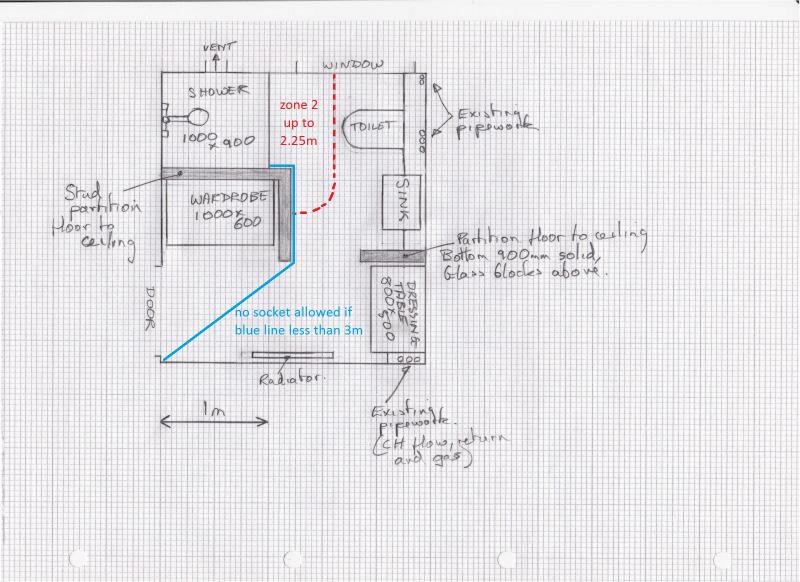 VENT
WINDOW
SHOWER
1000
x 900
zone 2
up to
2.25m
TOILET
Existing
pipework
Stud
partition
floor to
ceiling
WARDROBE
1000 x
600
SINK
Partition floor to ceiling
Bottom 900mm solid,
Glass blocks above.
DOOR
no socket allowed if
blue line less than 3m
DRESSING
TABLE
800 x
500
Radiator.
1m
Existing
pipework.
(CH flow, return
and gas)